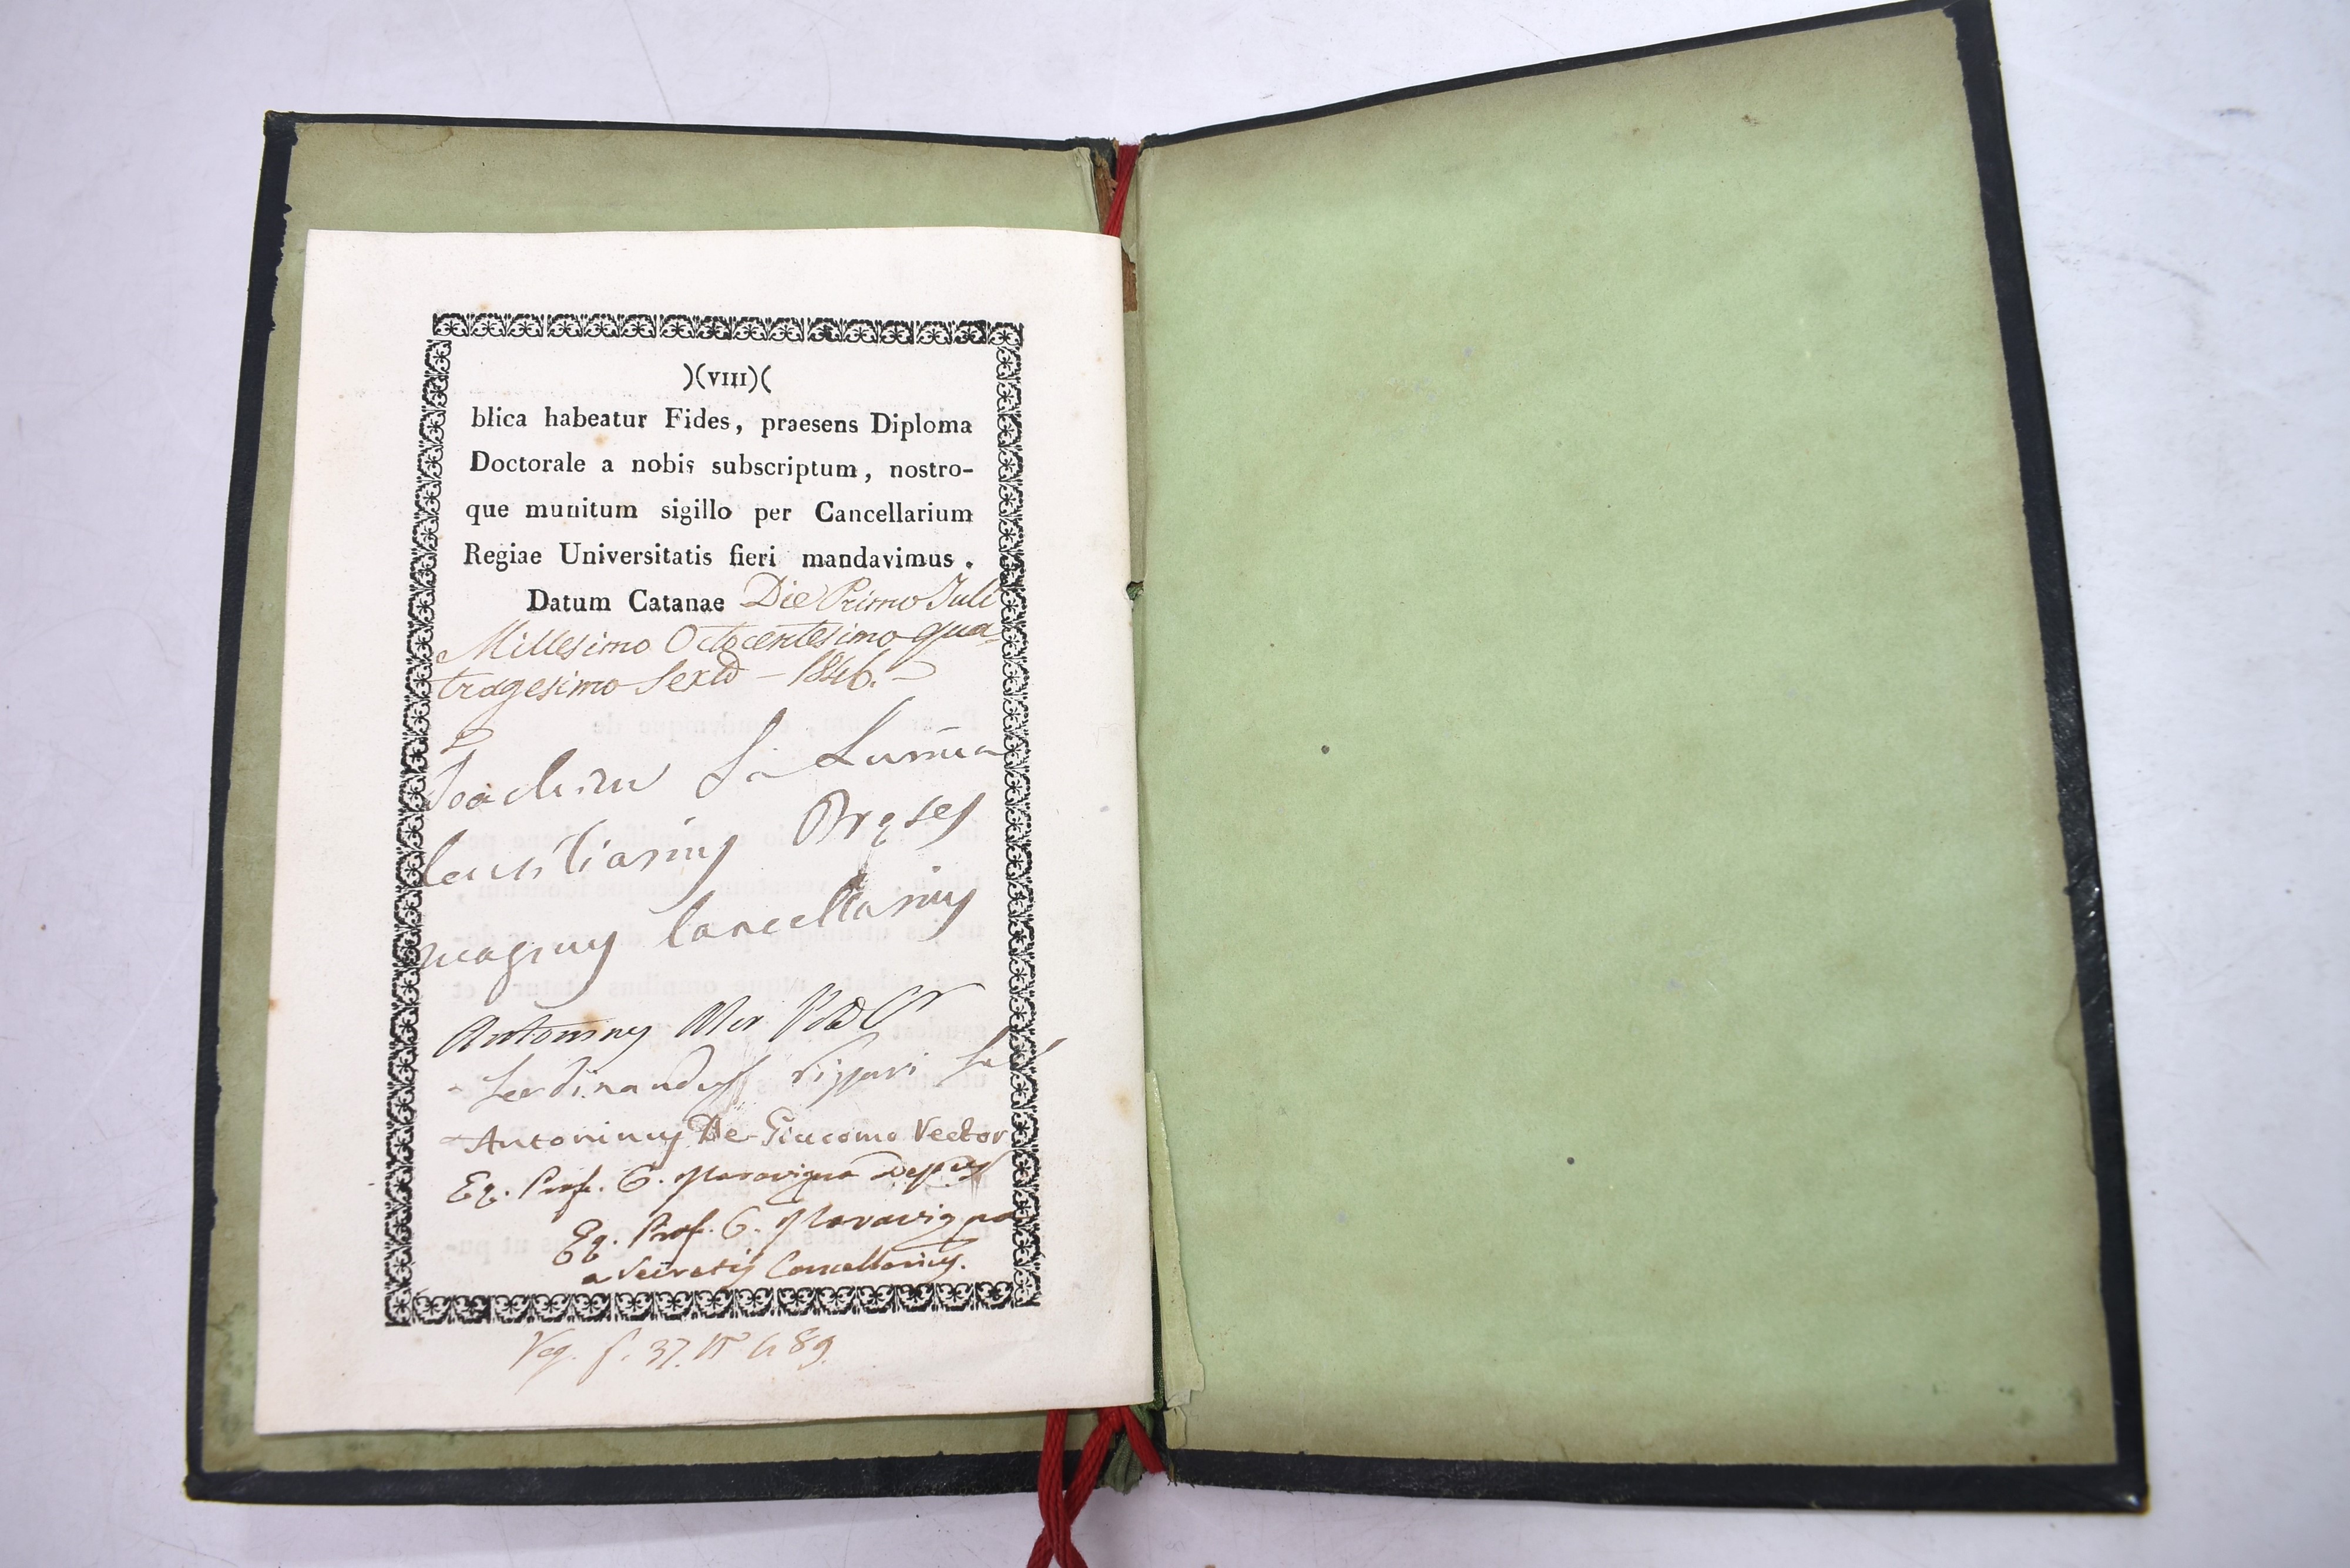 )(VIII)(
blica habeatur Fides, praesens Diploma
Doctorale a nobis subscriptum, nostro-
que munitum sigillo per Cancellarium
Regiae Universitatis fieri mandavimus.
Datum Catanae Die Primo Juli
Millesimo Octocentesimo qua-
tragesimo Sexto – 1846. –
Joachim
Præses
magnus Cancellarius
Antoninus
Ferdinandus
Antoninus De-Giacomo Rector
Eq. Prof. C. Maravigna
Eq. Prof. C. Maravigna
a Secretis Cancellarius.
Reg. f. 37.